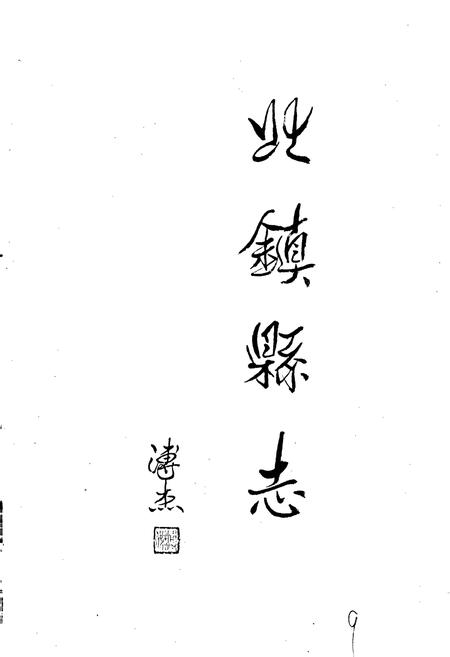 北鎮縣志
溥杰
9